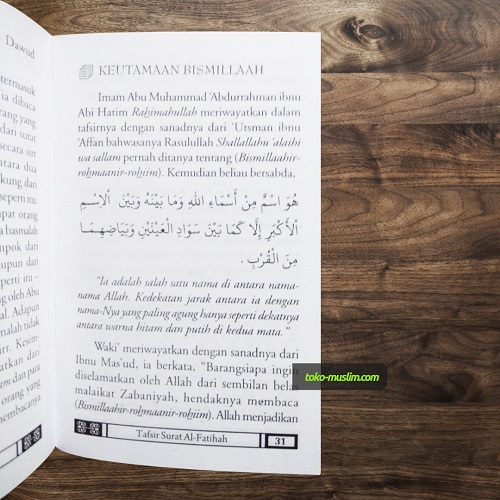 Dawud
termasuk
ia dibaca
orang yang
dari surat
secara sirr
antara dua
dari
perti itu
apat orang
basmalah
ompok dari
aupun dari
eperti itu –
g oleh Abu
al. Adapun
malah tidak
rr. Kesim-
m dan para
orang yang
membacanya
KEUTAMAAN BISMILLAAH
Imam Abu Muhammad 'Abdurrahman ibnu
Abi Hatim Rahimahullah meriwayatkan dalam
tafsirnya dengan sanadnya dari 'Utsman ibnu
'Affan bahwasanya Rasulullah Shallallahu 'alaihi
wa sallam pernah ditanya tentang (Bismillaahir-
rohmaanir-rohiim). Kemudian beliau bersabda,
هُوَ اسْمٌ مِنْ أَسْمَاءِ اللهِ وَمَا بَيْنَهُ وَبَيْنَ الْاِسْمِ
الْأَكْبَرِ إِلَّا كَمَا بَيْنَ سَوَادِ الْعَيْنَيْنِ وَبَيَاضِهِمَا
مِنَ الْقُرْبِ .
"Ia adalah salah satu nama di antara nama-
nama Allah. Kedekatan jarak antara ia dengan
nama-Nya yang paling agung hanya seperti dekatnya
antara warna hitam dan putih di kedua mata."
Waki' meriwayatkan dengan sanadnya dari
Ibnu Mas'ud, ia berkata, "Barangsiapa ingin
diselamatkan oleh Allah dari sembilan belas
malaikat Zabaniyah, hendaknya membaca
(Bismillaahir-rohmaanir-rohiim). Allah menjadikan
Tafsir Surat Al-Fatihah 31
toko-muslim.com